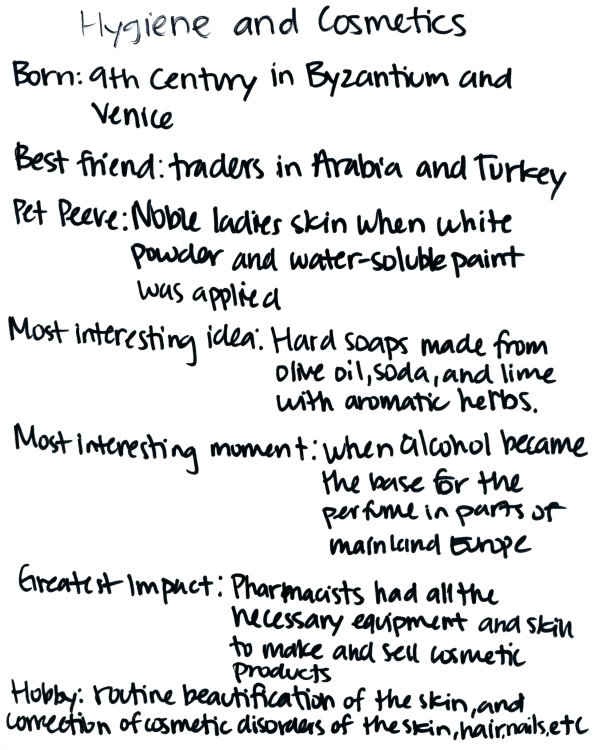 Hygiene and Cosmetics
Born: 9th Century in Byzantium and
Venice
Best friend: traders in Arabia and Turkey
Pet Peeve: Noble ladies skin when white
powder and water-soluble paint
was applied
Most interesting idea: Hard soaps made from
olive oil, soda, and lime
with aromatic herbs.
Most interesting moment: when alcohol became
the base for the
perfume in parts of
mainland Europe
Greatest Impact: Pharmacists had all the
necessary equipment and skill
to make and sell cosmetic
products
Hobby: routine beautification of the skin, and
correction of cosmetic disorders of the skin, hair, nails, etc